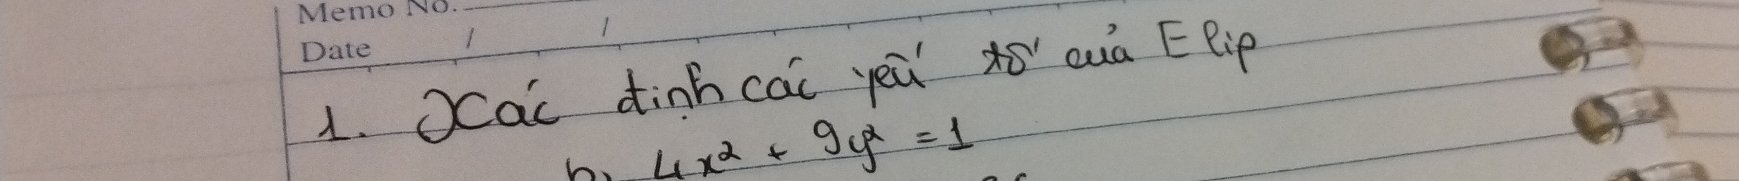 Memo No.
Date / /
1. Xác định các yếu tố của Elip
b, 4x² + 9y² = 1